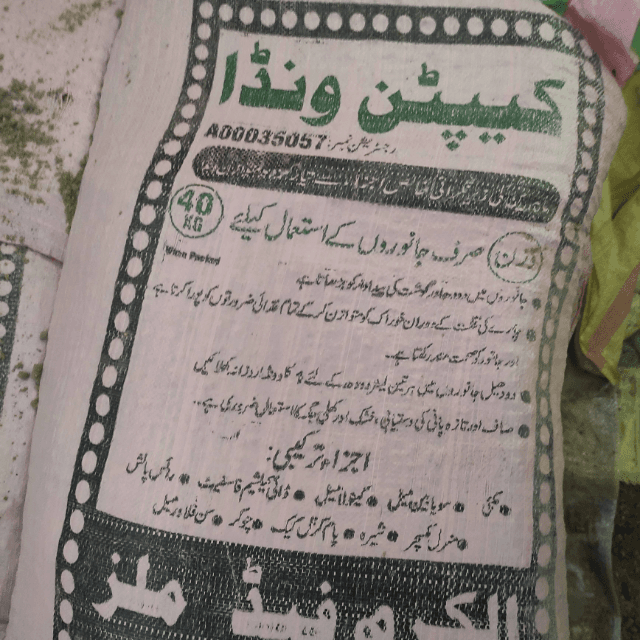 کیپٹن ونڈا
رجسٹریشن نمبر: A00035057
40 KG
صرف جانوروں کے استعمال کیلئے
جانوروں میں دودھ اور گوشت کی پیداوار کو بڑھاتا ہے
چارے کی قلت کے دوران خوراک کو متوازن کر کے تمام غذائی ضرورتوں کو پورا کرتا ہے
اور جانور کو صحت مند رکھتا ہے۔
دودھیل جانوروں میں ہر تین لیٹر دودھ کے لئے کلو ونڈا روزانہ کھلائیں
صاف اور تازہ پانی کی دستیابی خشک اور کھلی جگہ کا استعمال ضروری ہے۔
اجزاء ترکیبی:
مکئی • سویابین میل • کینولا میل • ڈائی کیلشیم فاسفیٹ • رائس پالش
منرل مکسچر • شیرہ • پام کرنل کیک • چوکر • سن فلاور میل
اکرم فیڈ ملز